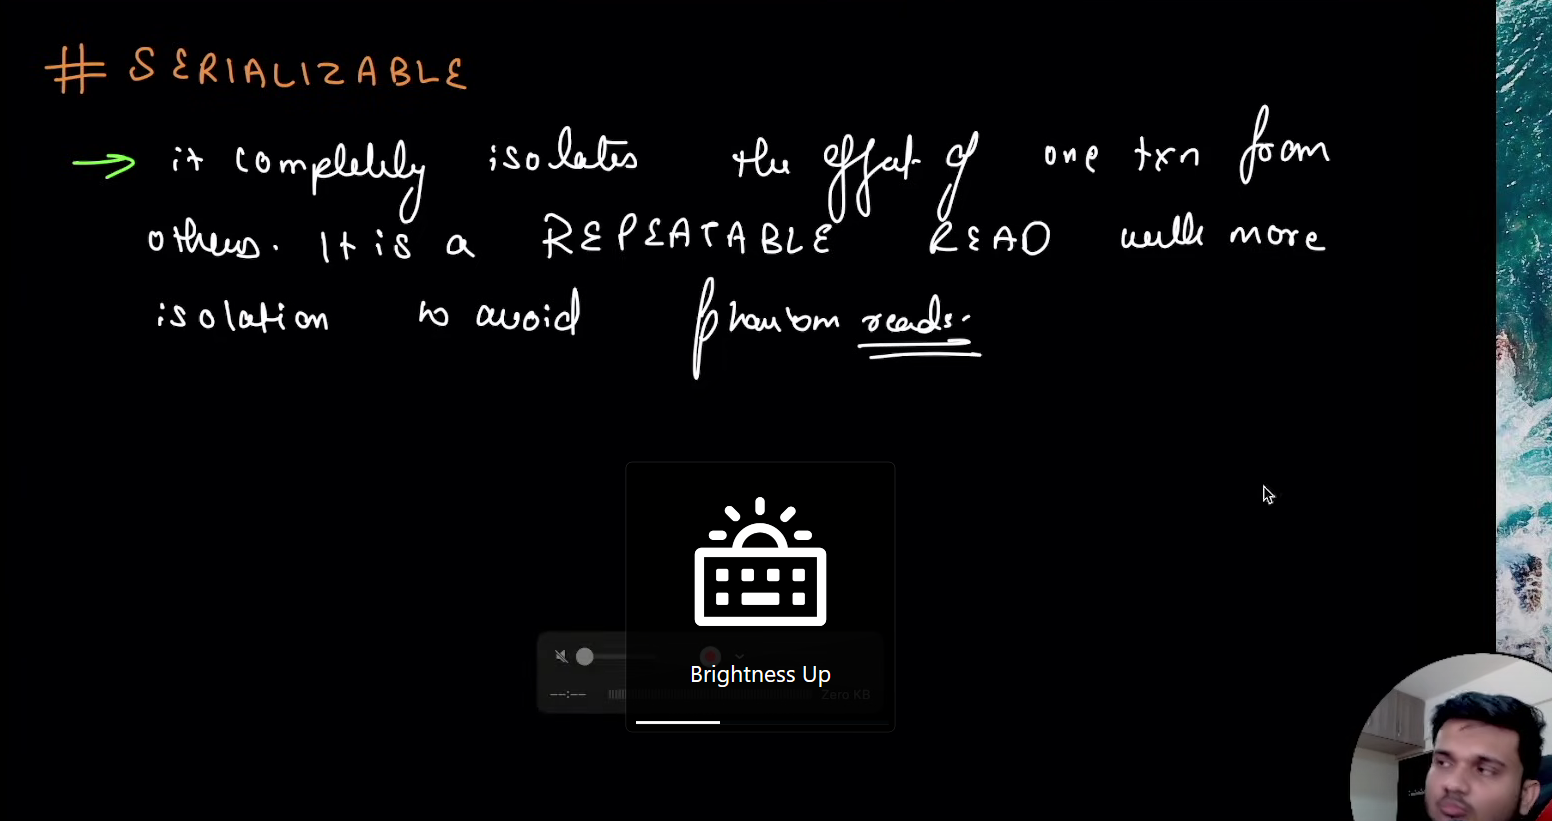 # SERIALIZABLE
→ it completely isolates the effect of one txn from
others. It is a REPEATABLE READ with more
isolation to avoid phantom reads.
Brightness Up
--:--
Zero KB